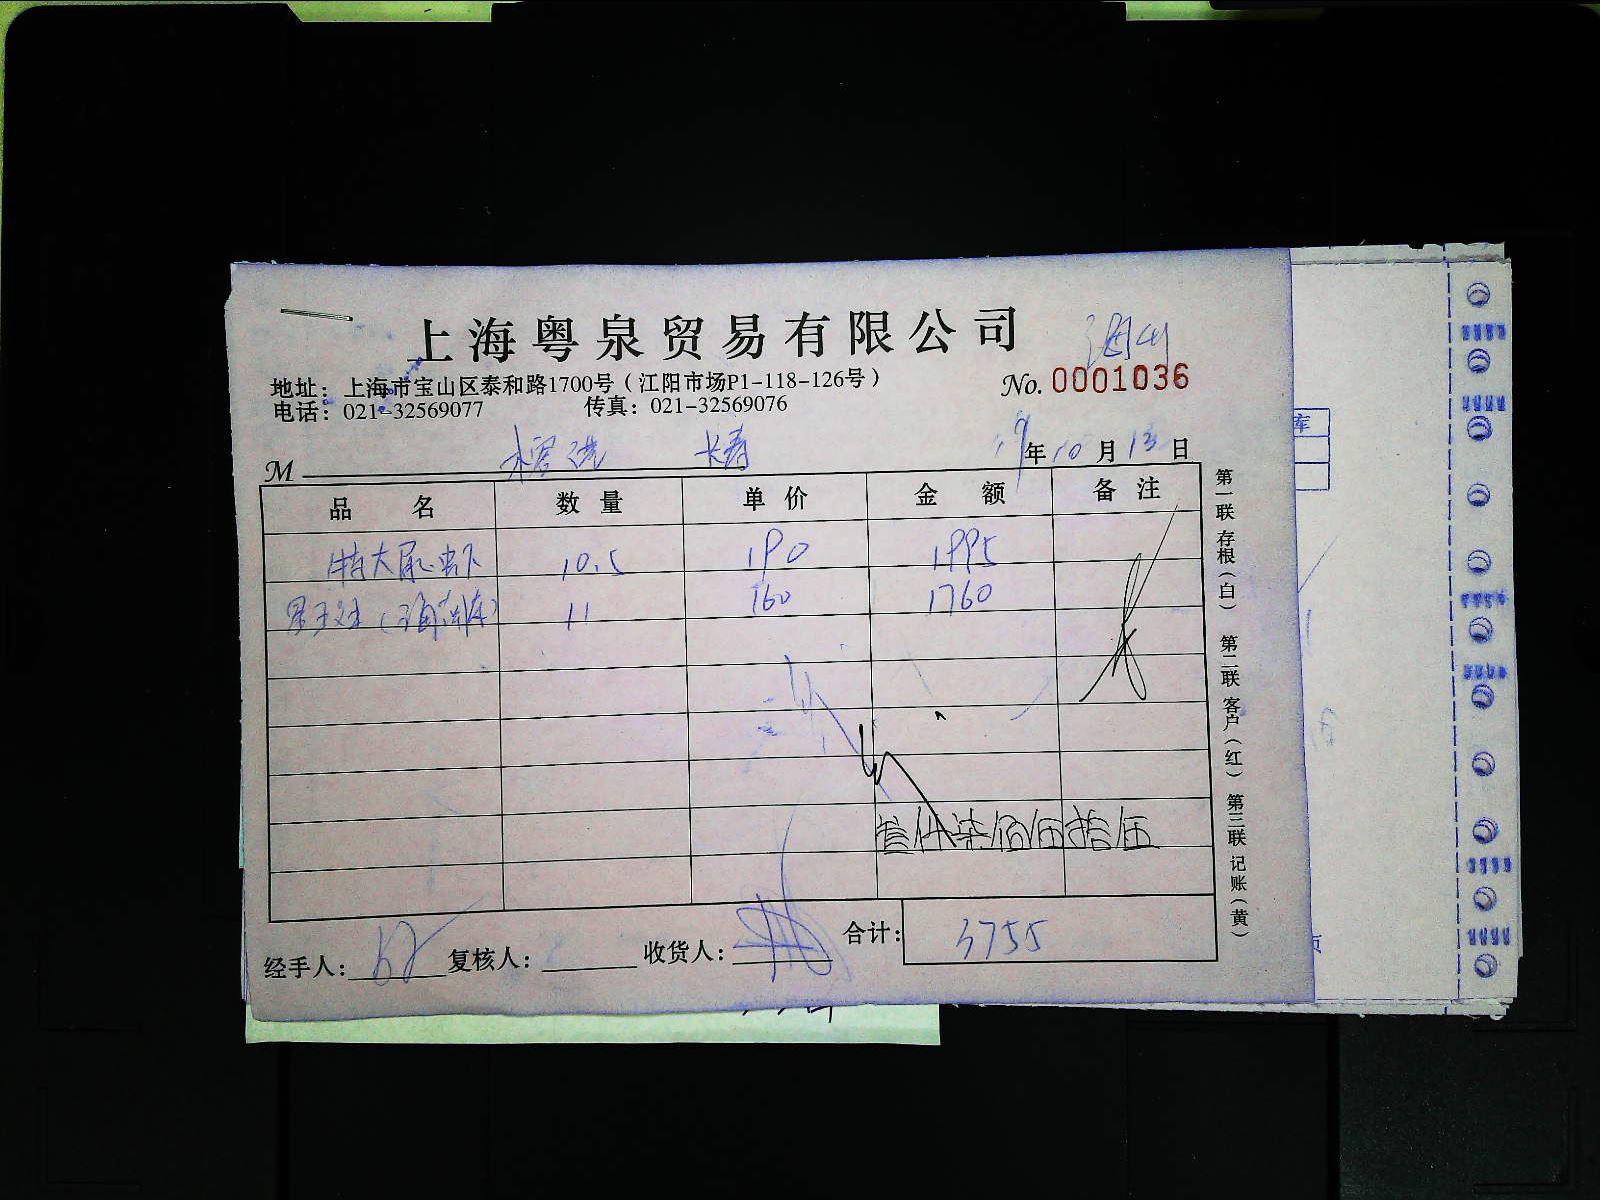 上海粤泉贸易有限公司
地址：上海市宝山区泰和路1700号（江阳市场P1-118-126号）
No. 0001036
电话：021-32569077 传真：021-32569076
M 长寿 19年10月13日
品名 数量 单价 金额 备注
特大尿虾 10.5 190 1995
11 160 1760
叁仟柒佰伍拾伍
合计：3755
经手人： 复核人： 收货人：
第一联存根（白） 第二联客户（红） 第三联记账（黄）
车